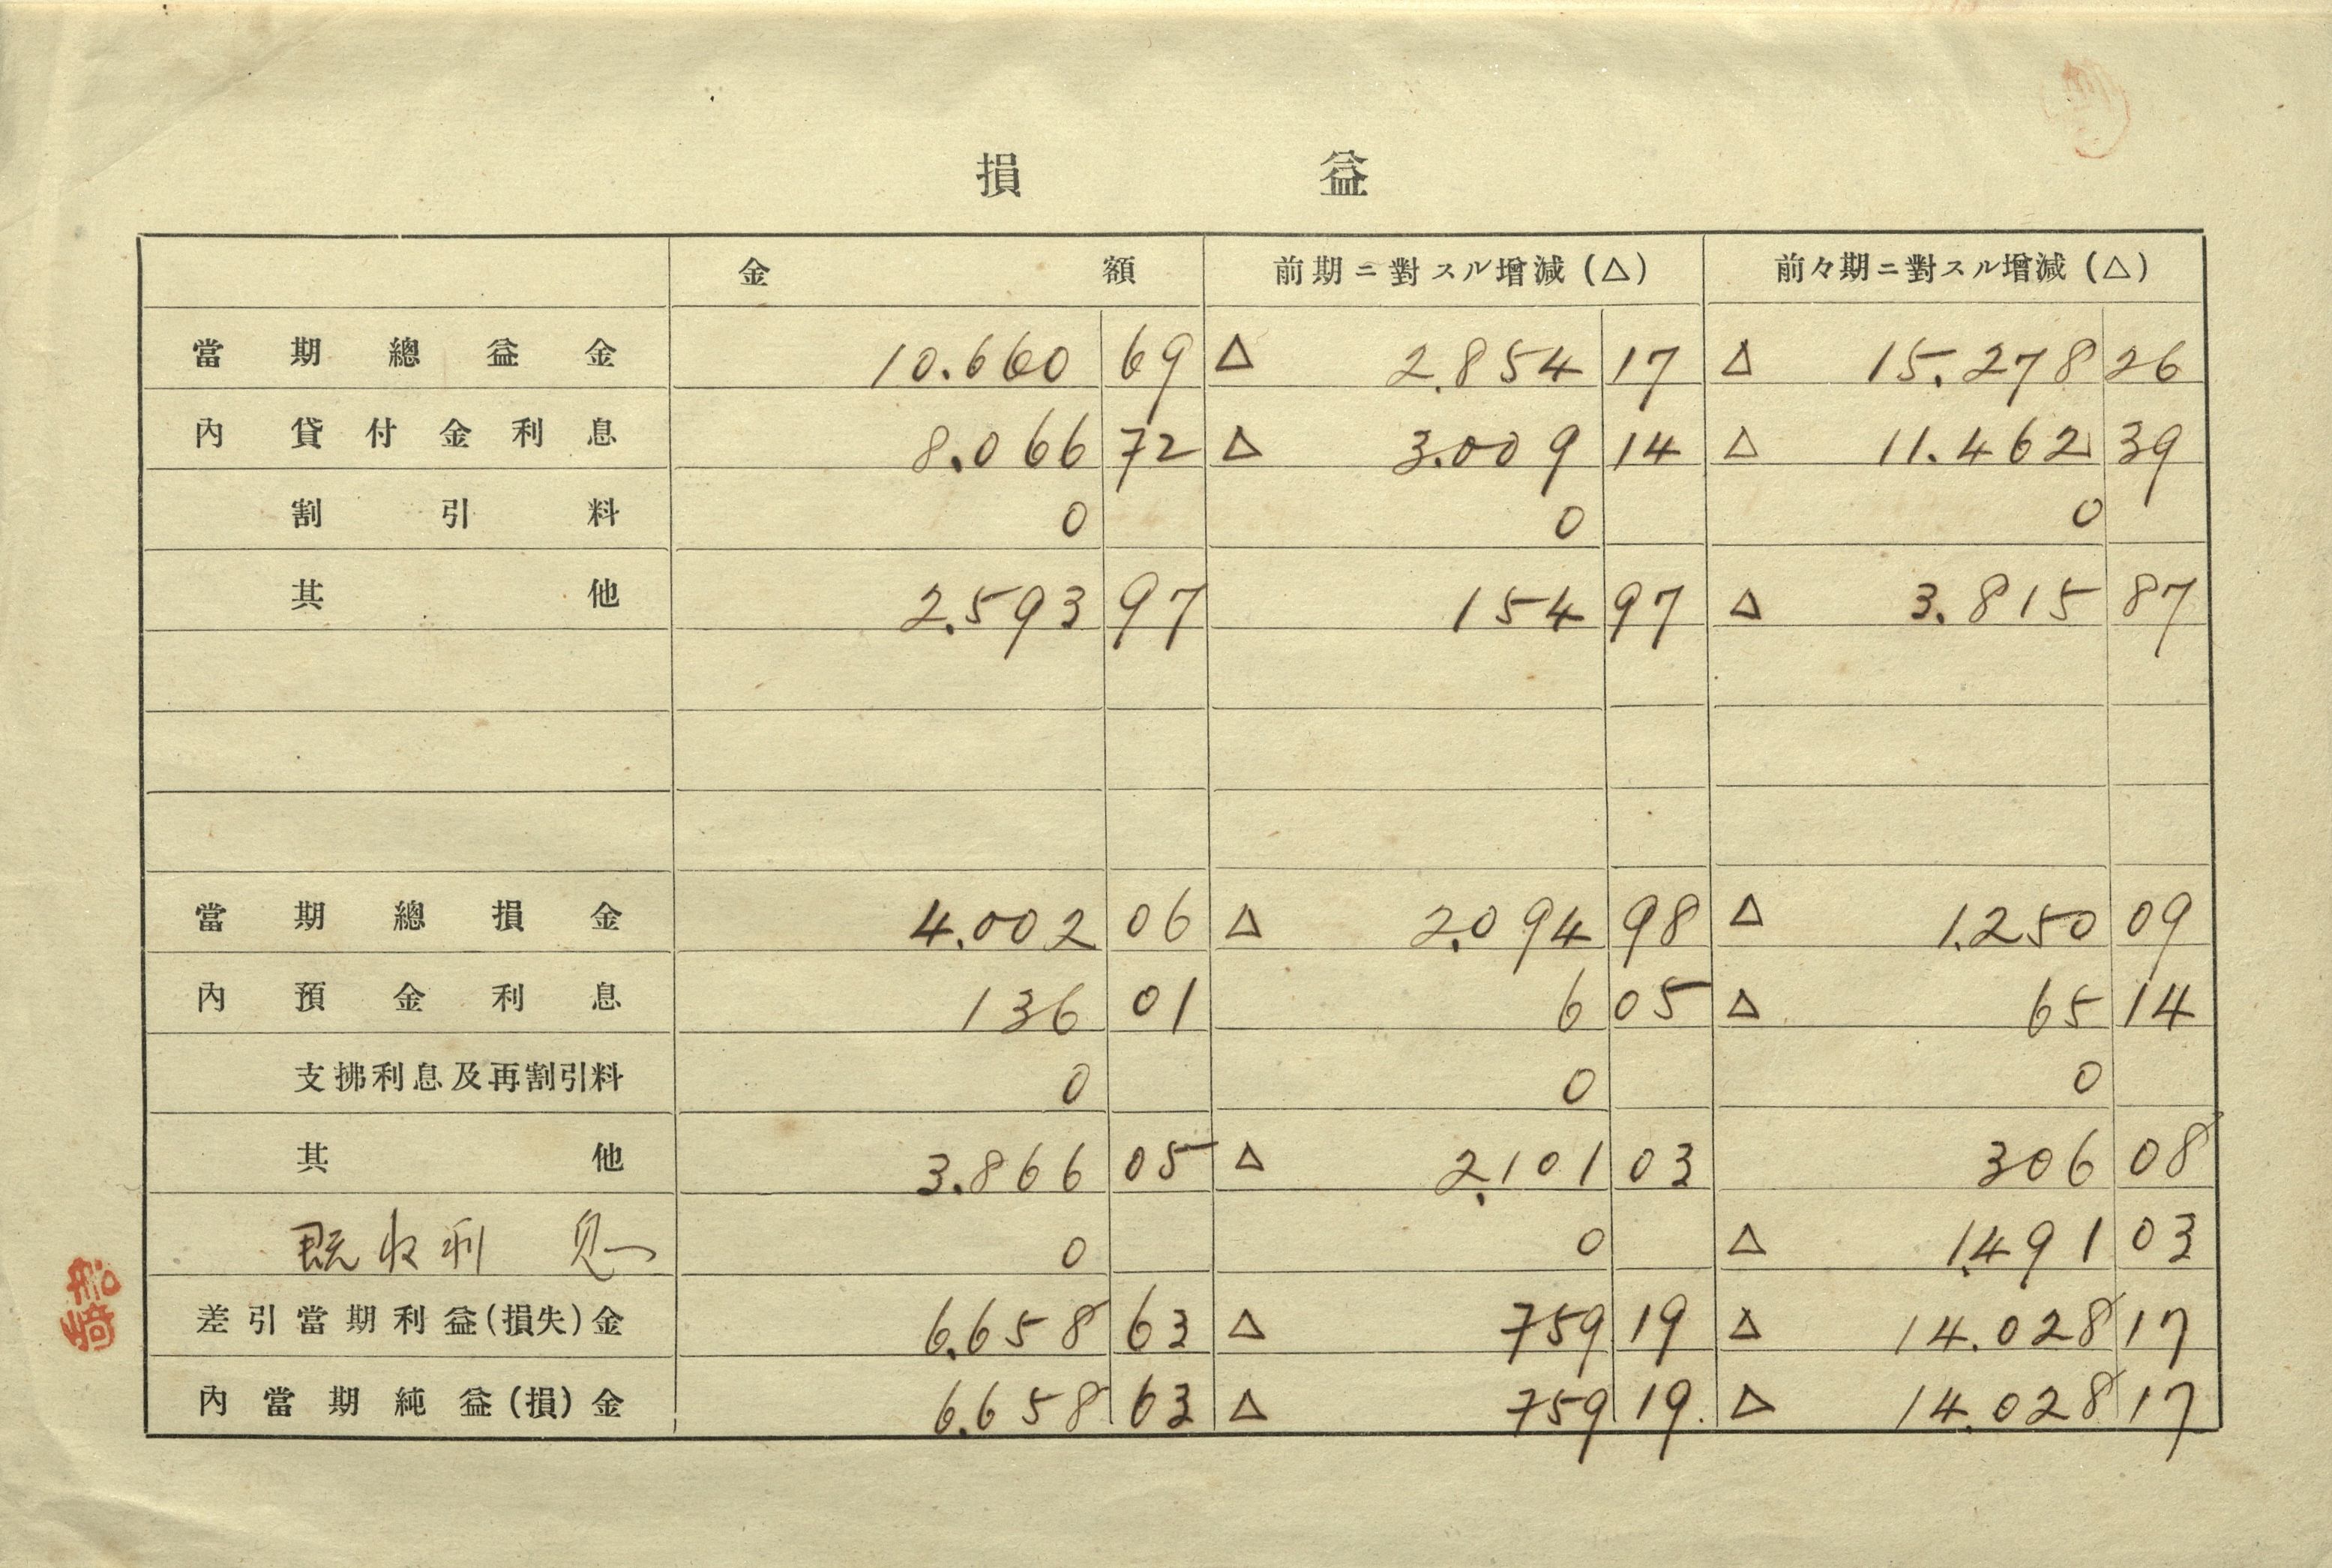 損益
金額 前期ニ對スル增減(△) 前々期ニ對スル增減(△)
當期總益金 10.660 69 △ 2.854 17 △ 15.278 26
內 貸付金利息 8.066 72 △ 3.009 14 △ 11.462 39
割引料 0 0 0
其他 2.593 97 154 97 △ 3.815 87
當期總損金 4.002 06 △ 2.094 98 △ 1.250 09
內 預金利息 136 01 6 05 △ 65 14
支拂利息及再割引料 0 0 0
其他 3.866 05 △ 2.101 03 306 08
既收利息 0 0 △ 1.491 03
差引當期利益(損失)金 6.658 63 △ 759 19 △ 14.028 17
內當期純益(損)金 6.658 63 △ 759 19. △ 14.028 17
船﨑